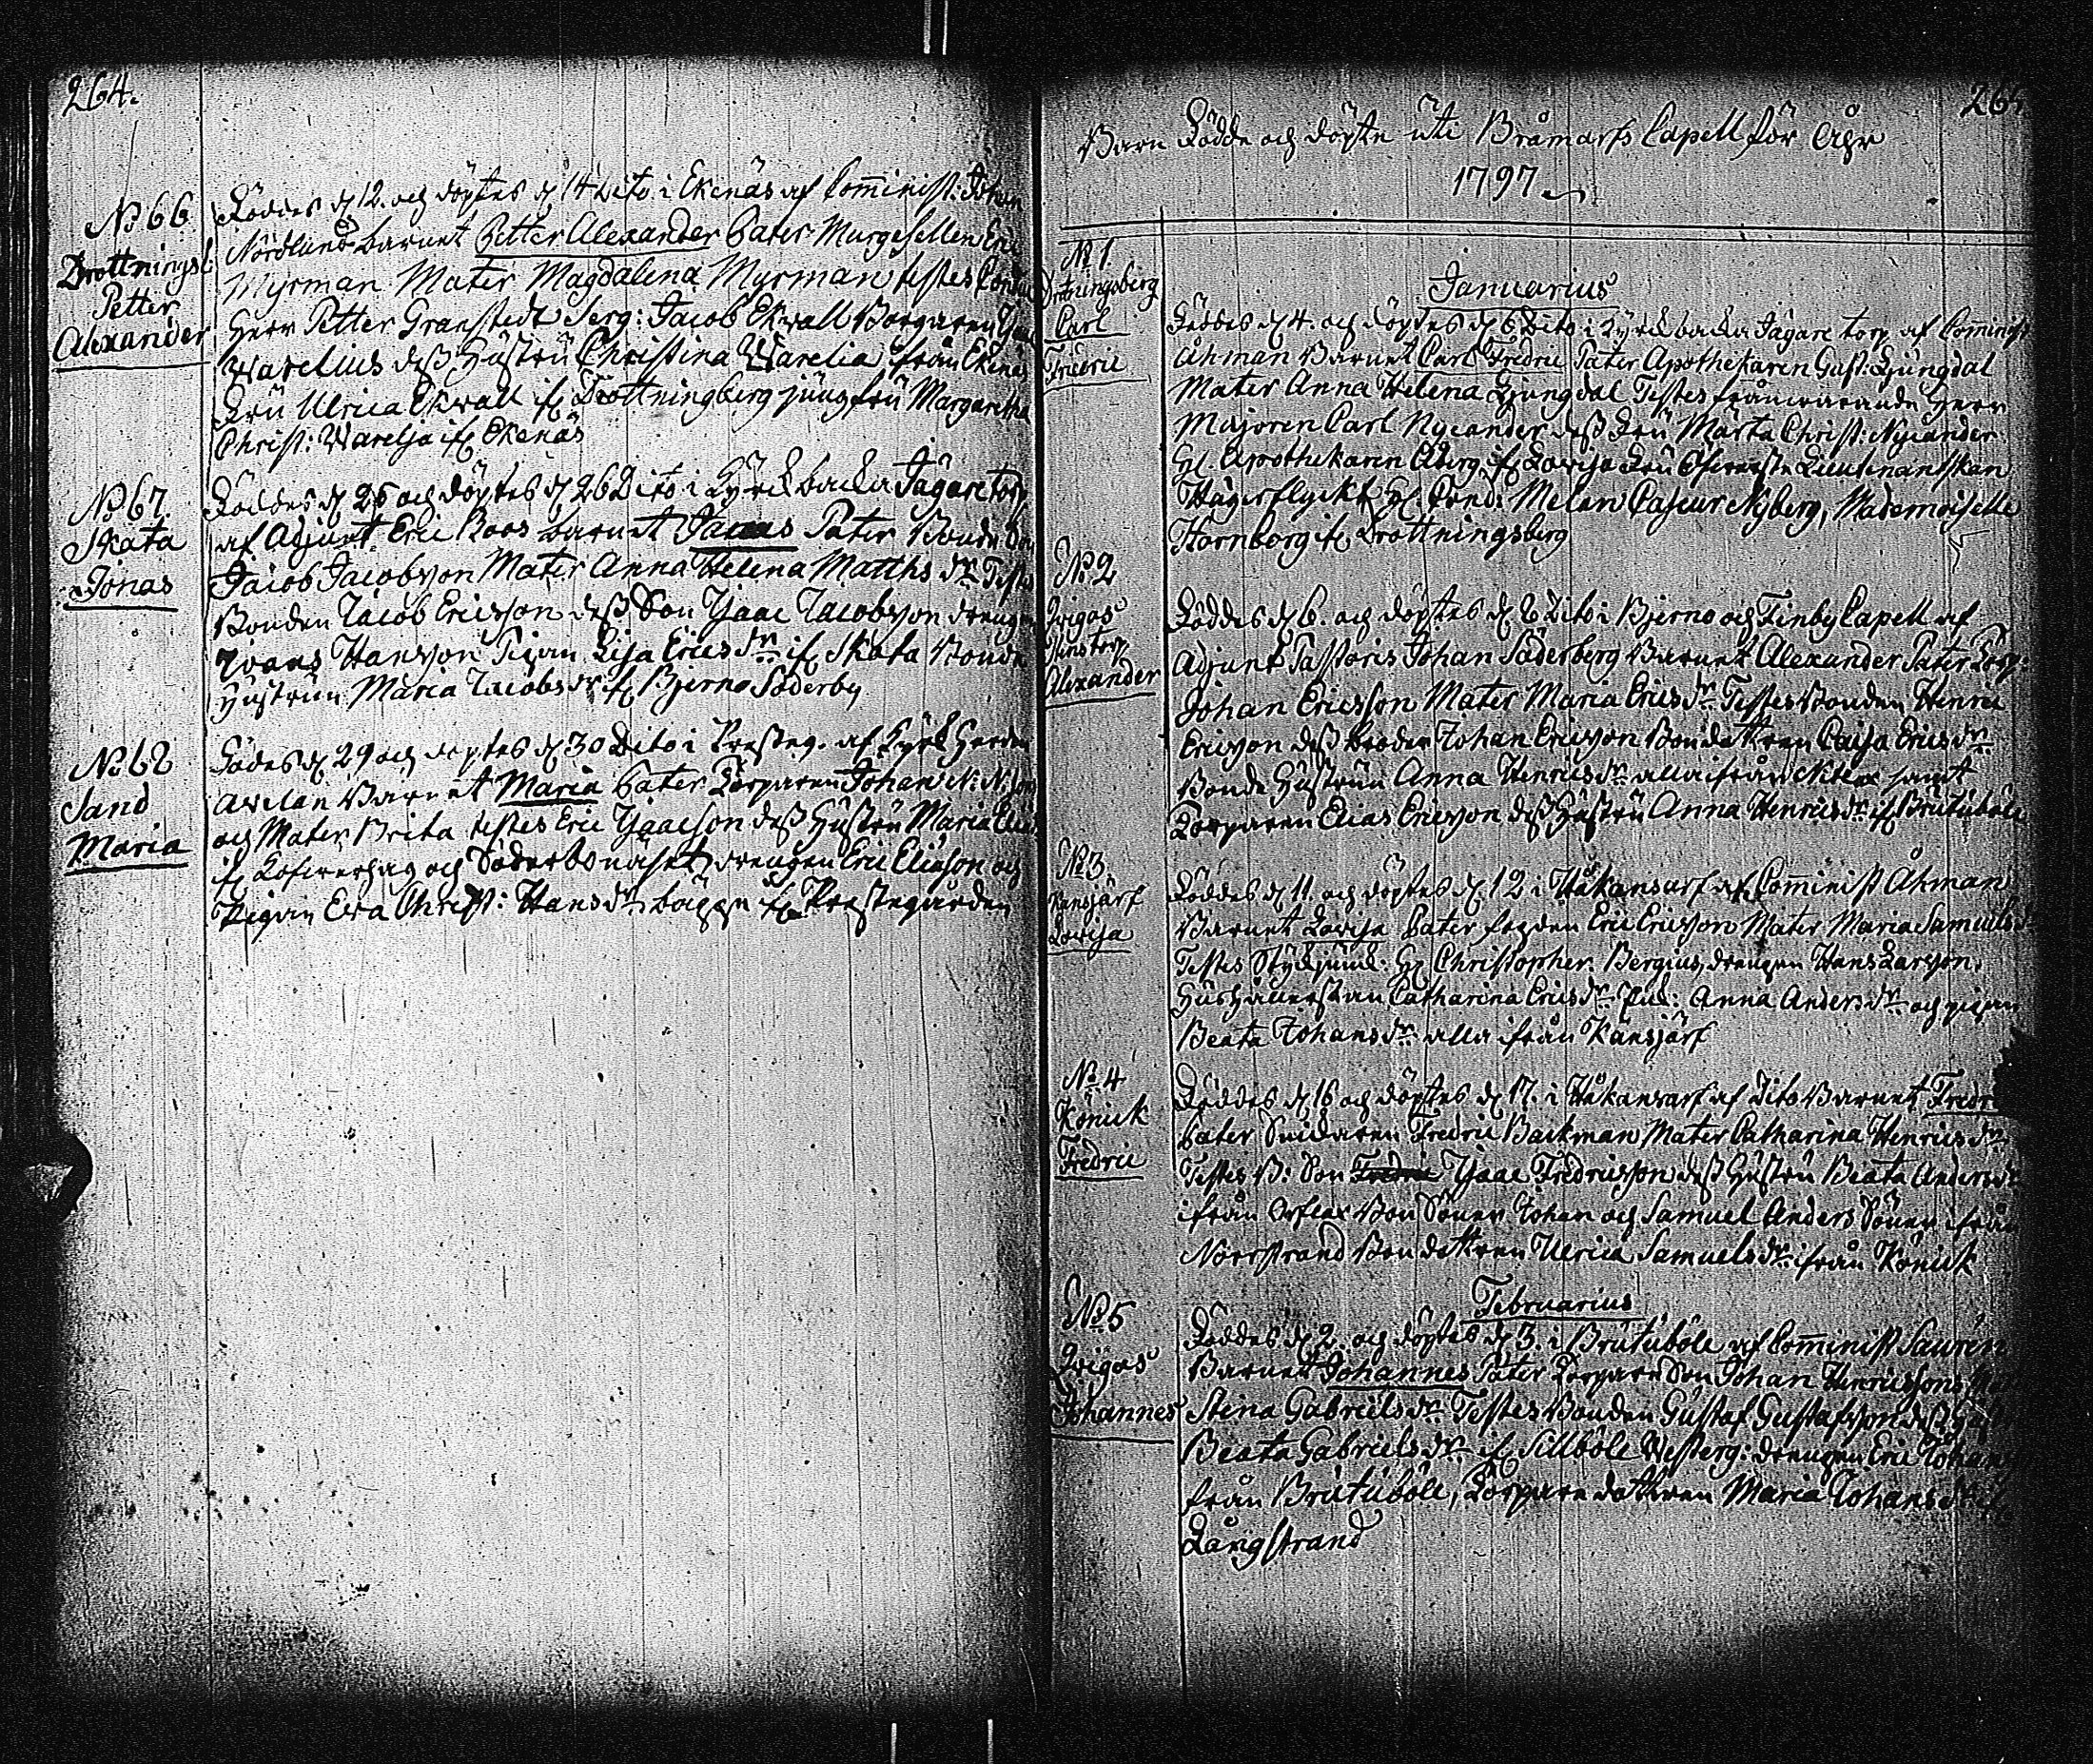 264.
No 66
Drottningsb:
Petter
Alexander
Föddes d 12. och döptes d 14 Dito i Ekenäs af Comminist: Johan
Nordlund barnet Petter Alexander Pater Murgesellen Eric
Myrman Mater Magdalena Myrman testes
Herr Petter Granstedt Serg: Jacob Ekwall Borgaren
Warelius dess Hustru Christina Warelia ifrån Ekenäs
Fru Ulrica Ekwall if Drottningberg jungfru Margaretha
Christ: Warelja if Ekenäs
No 67.
Skata
Jonas
Föddes d 25 och döptes d 26 Dito i Kyrckbacka Jägare torp
af Adjunt Eric Roos barnet Jonas Pater Bonde Son
Jacob Jacobsson Mater Anna Helena Matths dr Testes
Bonden Jacob Ericsson dess Son Isaac Jacobsson drengen
Hansson Pigan Lisa Erics dr if Skata Bonde
Hustrun Maria Jacobs dr if Bjerno Söderby
No 68
Sand
Maria
Födes d 29 och döptes d 30 Dito i Presteg. af Kyrk Herden
Avelan Barnet Maria Pater Torparen Johan N: N: son
och Mater Brita testes Eric Isaacson dess Hustru Maria
if och drengen Eric Eliason och
Pigan Ewa Christ: Hans dr bägge if Prestegården
265
Barn Födde och döpte uti Bråmarfs Capell för Åhr
1797
No 1.
Drotningsberg
Carl
Fridric
Januarius
Föddes d 4. och döptes d 6 Dito i Kyrckbacka Jägare torp af Comminist
Åhman Barnet Carl Fredric Pater Apothekaren Gust: Ljungdal
Mater Anna Helena Ljungdal Testes frånvarande Herr
Majoren Carl Nycander dess Fru Märta Christ: Nycander
H. Apothekaren Åberg if Lovisa Fru Öfverste Lieutenantskan
Hägerflyckt H Cond: Melan Caseur Nyberg, Mademoiselle
Hornborg if Drottningsberg
No 2
Qvigos
Finstorp
Alexander
Föddes d 6. och döptes d 8 Dito i Bjerno och Finby Capell af
Adjunt Pastoris Johan Söderberg Barnet Alexander Pater Torp:
Johan Ericsson Mater Maria Erics dr Testes Bonden Henric
Ericsson dess broder Johan Ericsson Bondedottren Caisa Erics dr
Bonde Hustrun Anna Henrics dr alla ifrån samt
Torparen Elias Ericsson dess Hustru Anna Henrics dr if Brutuböle
No 3.
Kansjärf
Lovisa
Föddes d 11 och döptes d 12 i Håkansarf af Comminist Åhman
Barnet Lovisa Pater Eric Ericsson Mater Maria Samuels dr
Testes Styckjunk: H Christopher Bergius, drengen Hans Larsson,
Hushållerskan Catharina Erics dr Pig: Anna Anders dr och pigan
Beata Johans dr alla ifrån Kansjärf
No 4
Könick
Fredric
Föddes d 16 och döptes d 17. i Håkansarf af Dito Barnet Fredric
Pater Snickaren Fredric Backman Mater Catharina Henrics dr
Testes B: Son Isaac Fredricsson dess Hustru Beata Anders dr
ifrån Bon Söner Johan och Samuel Anders Söner ifrån
Norrstrand Bondottren Ulrica Samuels dr ifrån Könick
No 5
Qvigos
Johannes
Februarius
Föddes d 2. och döptes d 3. i Brutuböle af Comminist Sauren
Barnet Johannes Pater Torpare Son Johan Henricsson
Stina Gabriels dr Testes Bonden Gustaf Gustafsson dess
Beata Gabriels dr if Sillböle Westerg: drengen Eric
från Brutuböle, Torpare dottren Maria Johans dr
Långstrand